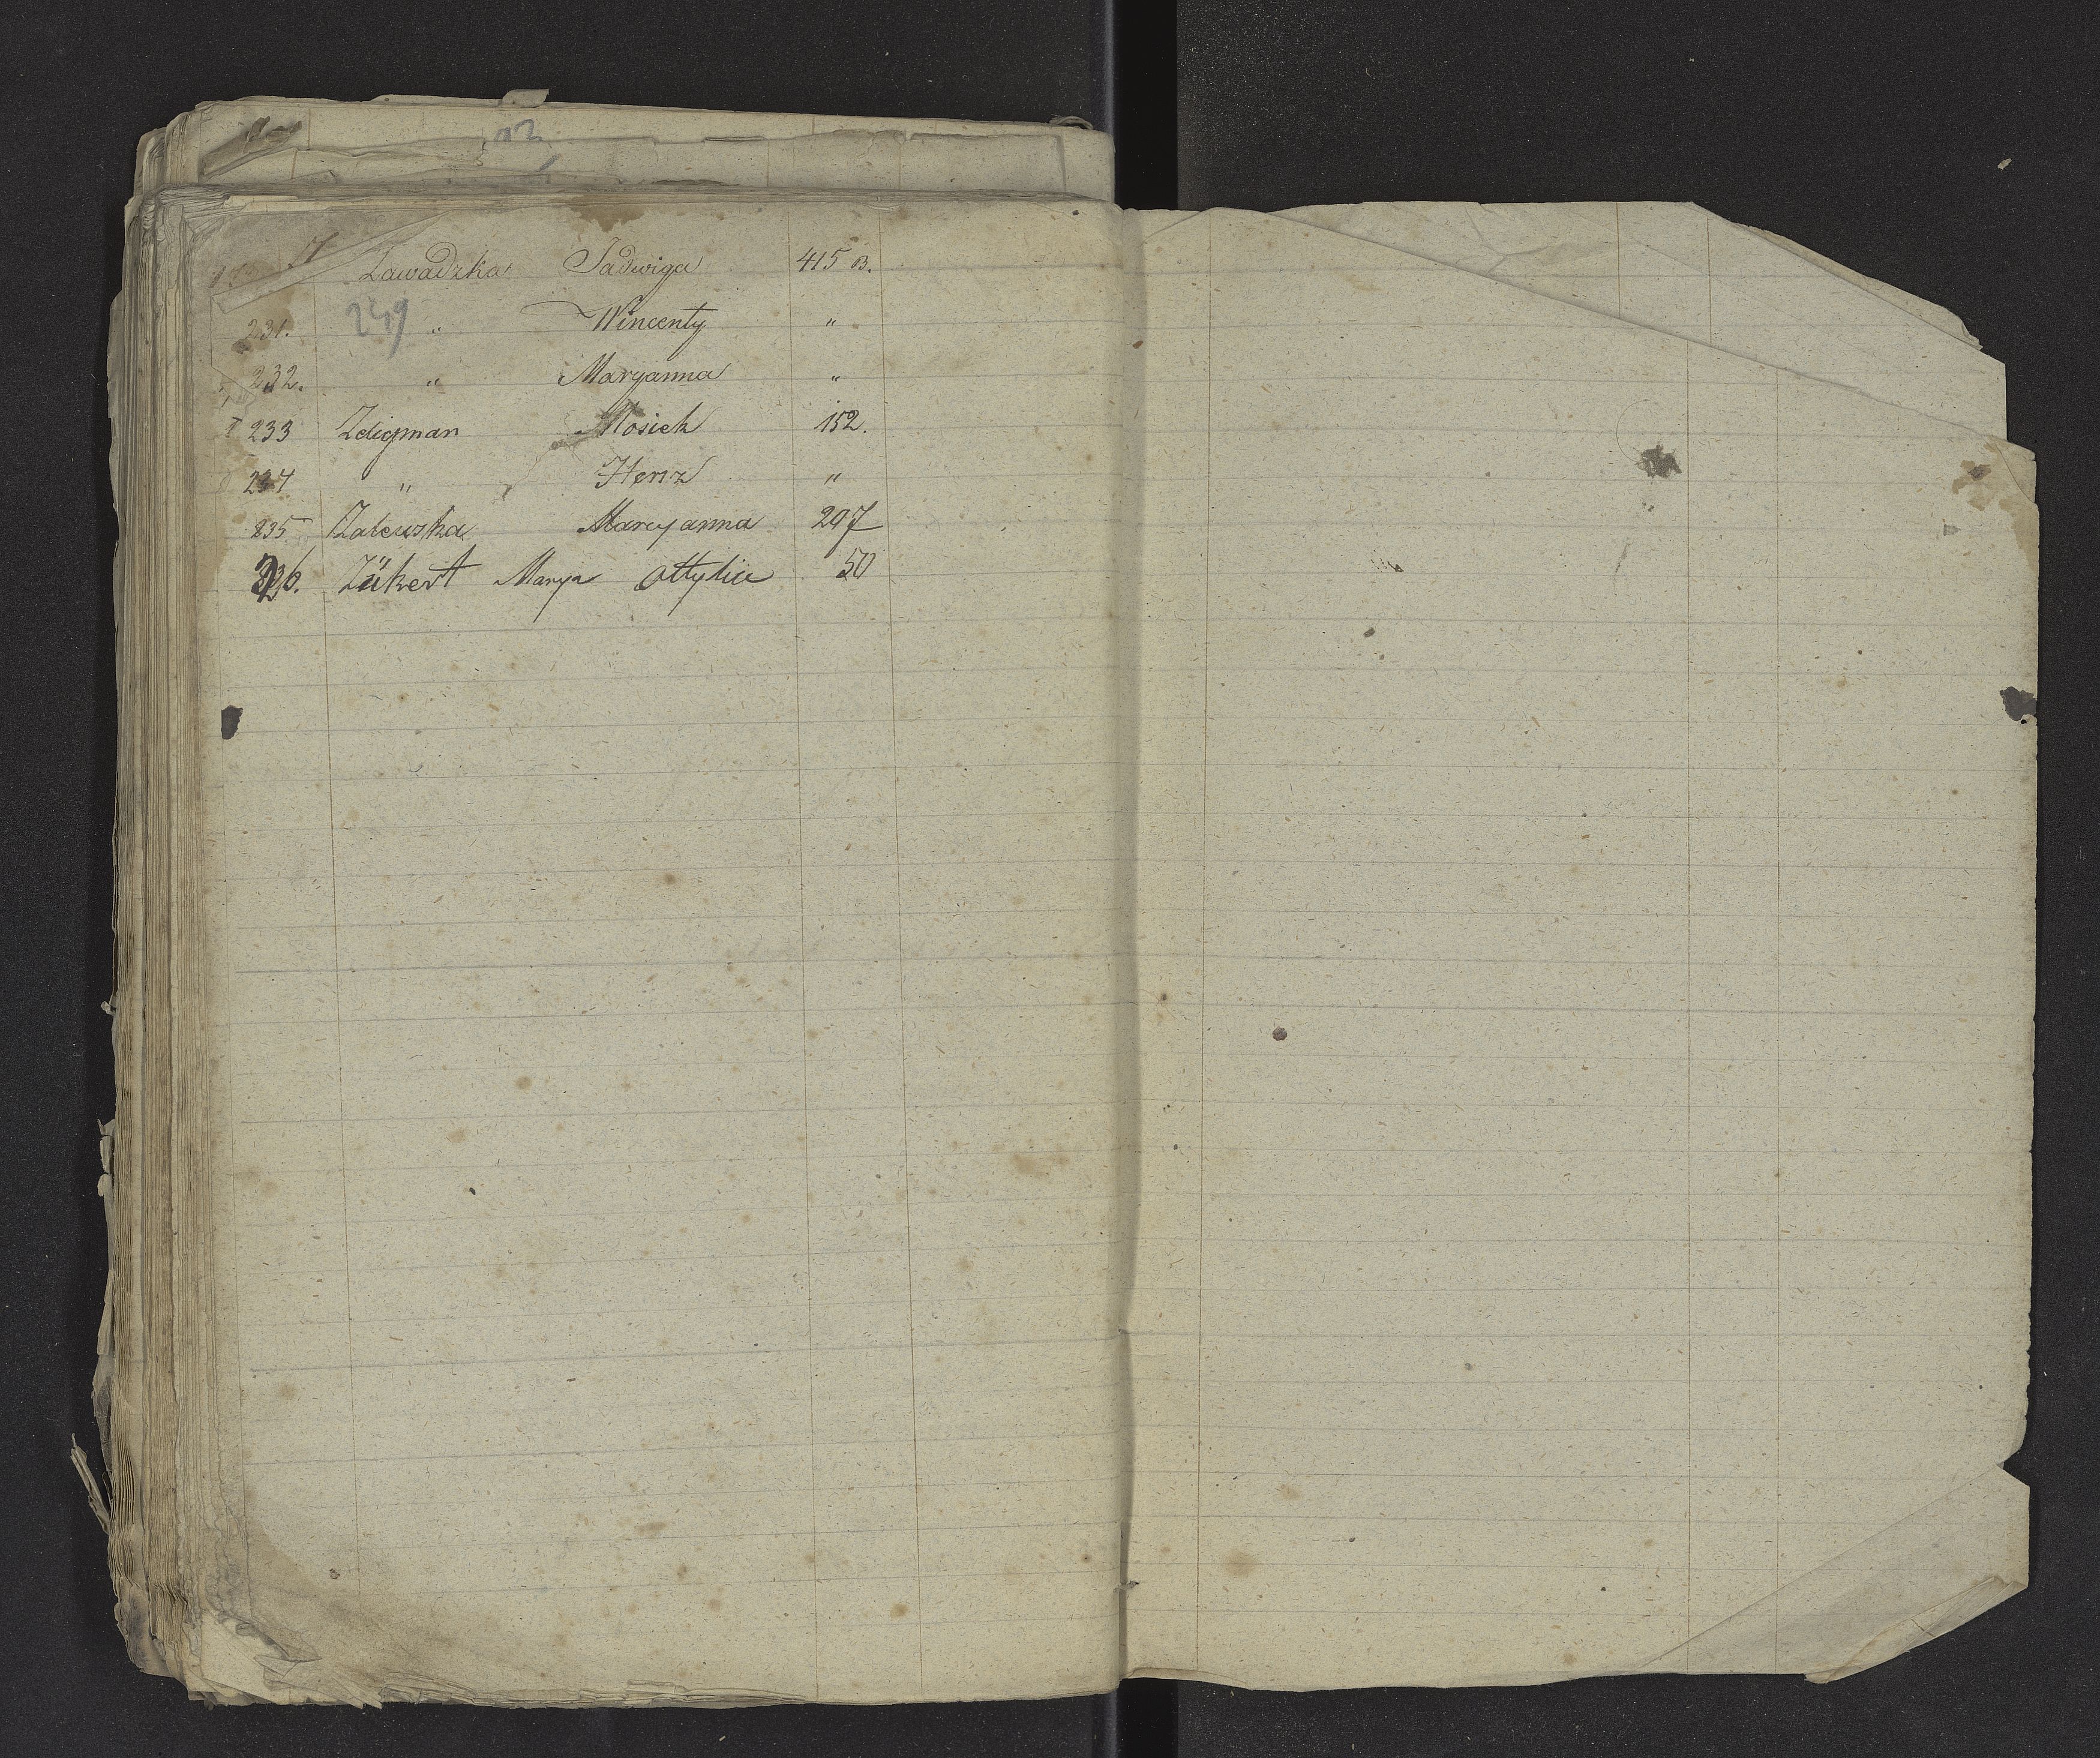 Zawadzka Jadwiga 415 B.
249
231. " Wincenty "
232. " Maryanna "
233 Zeligman Mosiek 152.
234 " Henz "
235 Zalewska Maryanna 297
236. Zükert Marya Ottylia 50